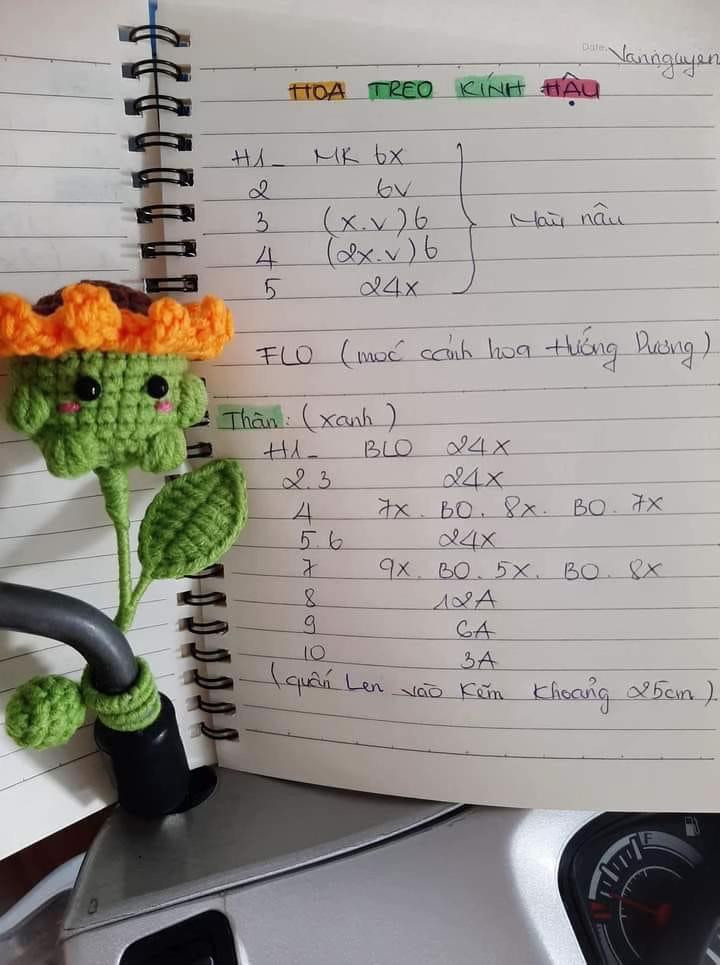 Date.
Vannguyen
HOA TREO KÍNH HẬU
H1_ MR 6x
2 6v
3 (x.v)6
4 (2x.v)6
5 24x
Màu nâu
FLO (móc cánh hoa Hướng Dương)
Thân: (xanh)
H1_ BLO 24x
2.3 24x
4 7x. BO. 8x. BO. 7x
5.6 24x
7 9x. BO. 5x. BO. 8x
8 12A
9 6A
10 3A
(quấn Len vào Kẽm khoảng 25cm).
F